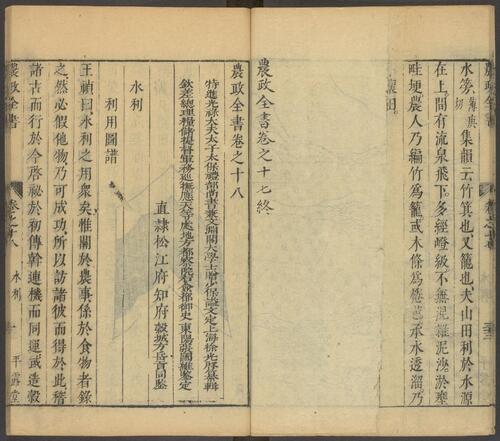 水筹
集韻云竹箕也又籠也夫山田利於水源
在上間有流泉飛下多經磴級不無混雜泥沙淤壅
畦埂農人乃編竹爲籠或木條爲棬芭承水透溜乃
農政全書卷之十七終
農政全書卷之十八
特進光祿大夫太子太保禮部尚書兼文淵閣大學士贈少保謚文定上海徐光啓纂輯
欽差總理糧儲提督軍務巡撫應天等處地方都察院右僉都御史東陽張國維鑒定
直隷松江府知府穀城方岳貢同鑒
水利
利用圖譜
王禎曰水利之用衆矣惟關於農事係於食物者錄
之然必假他物乃可成功所以訪諸彼而得於此稽
諸古而行於今啓祕於初傳幹連機而同運或造穀
農政全書
卷之十八
水利
一
平露堂